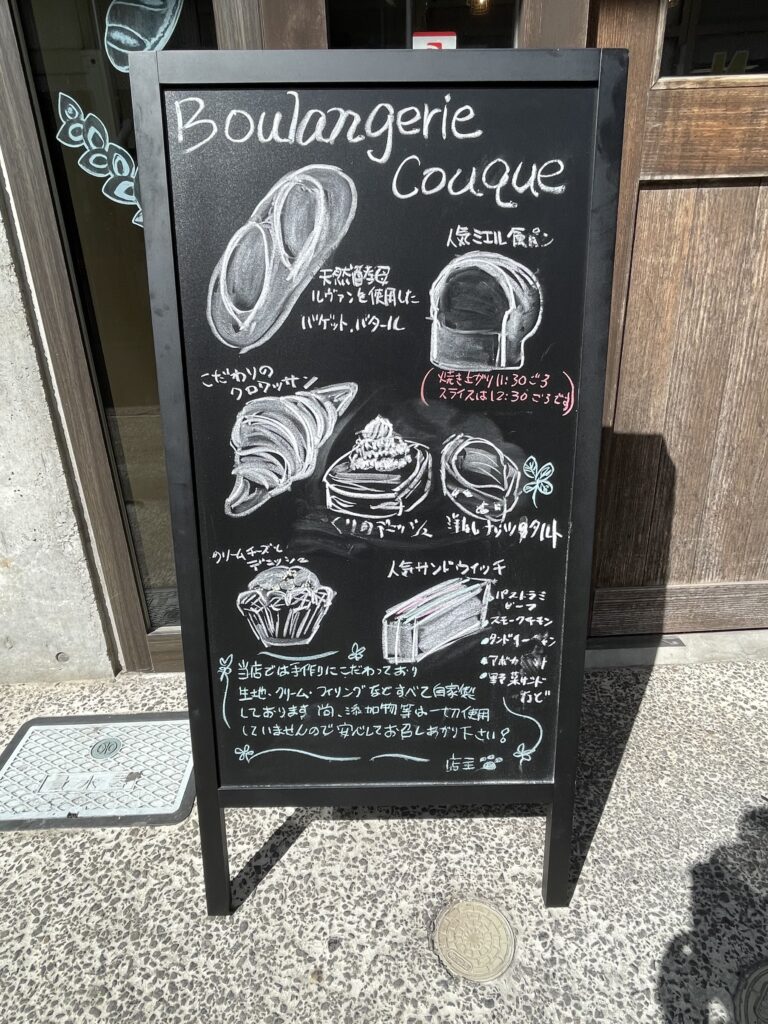 Boulangerie
Couque
人気ミエル食パン
天然酵母
ルヴァンを使用した
バゲット、バタール
(焼き上がり11:30ごろ
スライスは12:30ごろです)
こだわりの
クロワッサン
くりのデニッシュ
洋なしナッツのタルト
クリームチーズと
デニッシュ
人気サンドウィッチ
パストラミ
ビーフ
•スモークチキン
•タンドリーチキン
•アボカド
•野菜サンド
など
当店では手作りにこだわっており
生地、クリーム、フィリングなどすべて自家製
しております 尚、添加物等は一切使用
していませんので安心してお召しあがり下さい!
店主